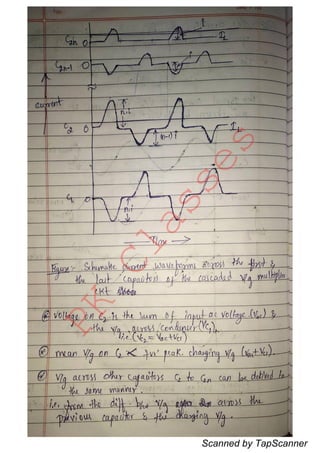 C2n 0
i
IL
C2n-1 0
current
C2 0
n-i
(n-1) i
IL
C1 0
n-i
Time
RK Classes
Figure:- Schematic current waveforms across the first &
the last capacitors of the cascaded V/g multiplier
ckt
voltage on C2 is the sum of input ac voltage (Vac) &
the V/g across condenser (VC1)
i.e. (VC2 = Vac + VC1)
mean V/g on C2 ∝ +ve peak charging V/g (Vac + VC1).
V/g across other capacitors C3 to C2n can be derived in
the same manner
i.e. from the diff. b/w V/g across the
previous capacitor & the charging V/g.
Scanned by TapScanner